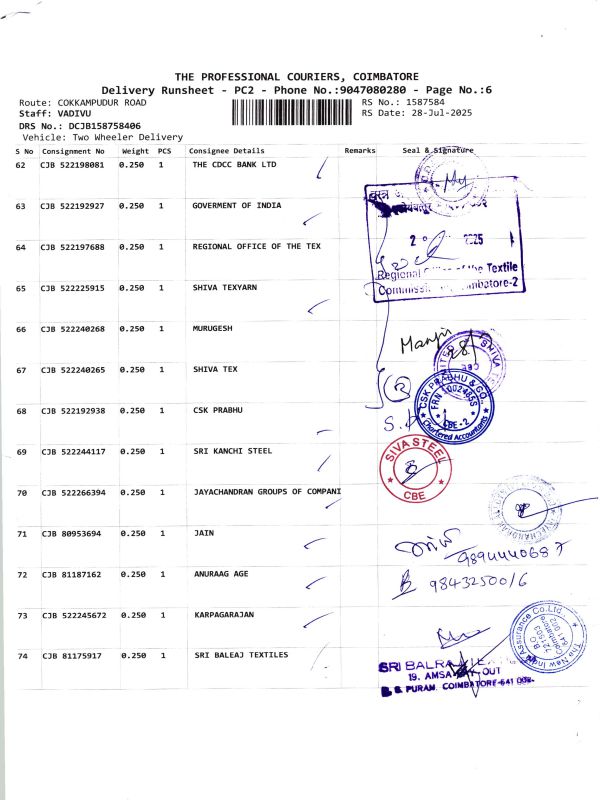 THE PROFESSIONAL COURIERS, COIMBATORE
Delivery Runsheet - PC2 - Phone No.:9047080280 - Page No.:6
Route: COKKAMPUDUR ROAD
RS No.: 1587584
Staff: VADIVU
RS Date: 28-Jul-2025
DRS No.: DCJB158758406
Vehicle: Two Wheeler Delivery
S No Consignment No Weight PCS Consignee Details Remarks Seal & Signature
62 CJB 522198081 0.250 1 THE CDCC BANK LTD
63 CJB 522192927 0.250 1 GOVERMENT OF INDIA
2025
64 CJB 522197688 0.250 1 REGIONAL OFFICE OF THE TEX
Regional of the Textile
65 CJB 522225915 0.250 1 SHIVA TEXYARN
66 CJB 522240268 0.250 1 MURUGESH
SHIVA
67 CJB 522240265 0.250 1 SHIVA TEX
68 CJB 522192938 0.250 1 CSK PRABHU
CSK PRABHU & CO.,
CBE - 2
Chartered Accountants
69 CJB 522244117 0.250 1 SRI KANCHI STEEL
SIVA STEEL
CBE
70 CJB 522266394 0.250 1 JAYACHANDRAN GROUPS OF COMPANI
71 CJB 80953694 0.250 1 JAIN
72 CJB 81187162 0.250 1 ANURAAG AGE
9843250016
73 CJB 522245672 0.250 1 KARPAGARAJAN
The New India Assurance Co.Ltd.
74 CJB 81175917 0.250 1 SRI BALEAJ TEXTILES
SRI
19, AMSA OUT
PURAM, COIMBATORE-641